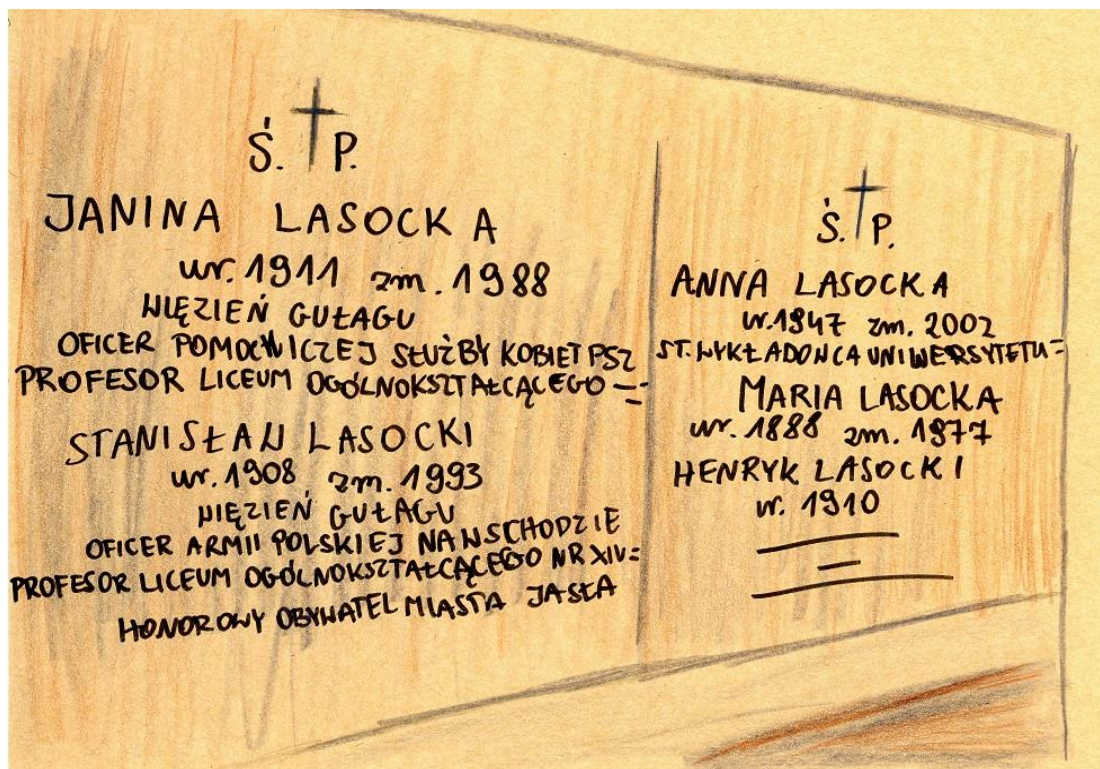 Ś. P.
JANINA LASOCKA
ur. 1911 zm. 1988
WIĘZIEŃ GUŁAGU
OFICER POMOCNICZEJ SŁUŻBY KOBIET PSZ
PROFESOR LICEUM OGÓLNOKSZTAŁCĄCEGO
STANISŁAW LASOCKI
ur. 1908 zm. 1993
WIĘZIEŃ GUŁAGU
OFICER ARMII POLSKIEJ NA WSCHODZIE
PROFESOR LICEUM OGÓLNOKSZTAŁCĄCEGO NR XIV
HONOROWY OBYWATEL MIASTA JASŁA
Ś. P.
ANNA LASOCKA
ur. 1947 zm. 2002
ST. WYKŁADOWCA UNIWERSYTETU
MARIA LASOCKA
ur. 1888 zm. 1977
HENRYK LASOCKI
ur. 1910